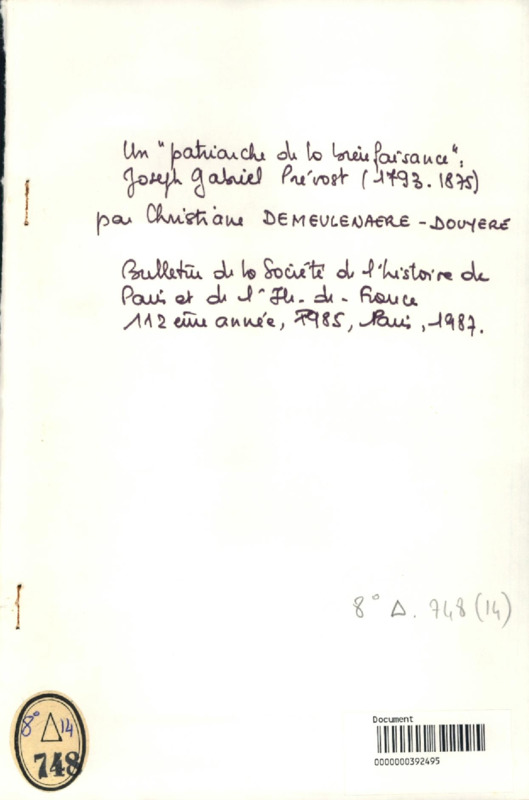 Un "patriarche de la bienfaisance",
Joseph Gabriel Prévost (1793.1875)
par Christiane DEMEULENAERE-DOUYERE
Bulletin de la Société de l'histoire de
Paris et de l'Ile-de-France
112 ème année, 1985, Paris, 1987.
8° Δ. 748 (14)
8° Δ 14
748
Document
0000000392495